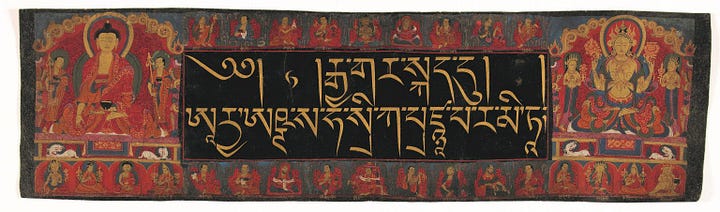 ༄། །རྒྱ་གར་སྐད་དུ། །
ཨཱརྱ་ཨཥྚ་ས་ཧ་སྲི་ཀ་པྲཛྙཱ་པ་ར་མི་ཏཱ།